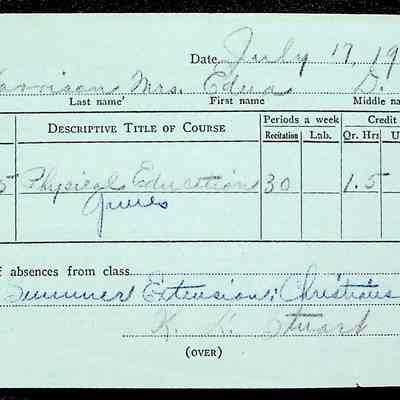 Date July 17, 19
Harrison Mrs. Edna D.
Last name First name Middle na
Descriptive Title of Course Periods a week Credit
Recitation Lab. Qr. Hrs U
5 Physical Education 30 1.5
Games
f absences from class
Summer Extension; Christians
K. K. Stuart
(OVER)